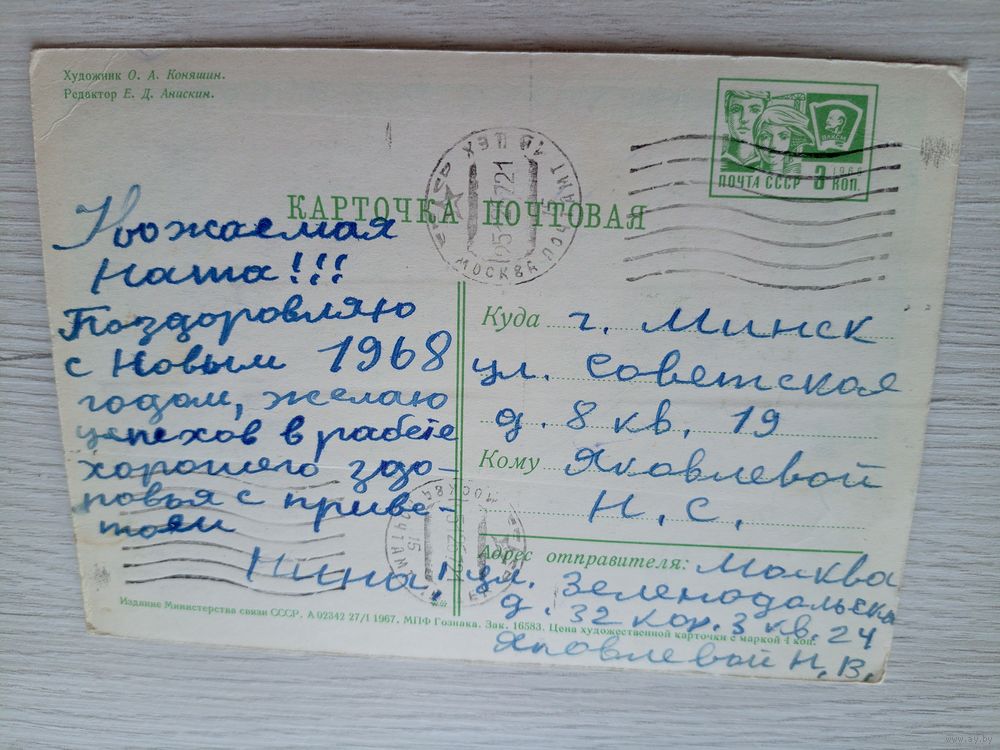 Художник О. А. Коняшин.
Редактор Е. Д. Анискин.
ВЛКСМ
1966
ПОЧТА СССР 3 КОП.
КАРТОЧКА ПОЧТОВАЯ
МОСКВА ПОЧТАМТ
ЦЕХ
Уважаемая
Ната!!!
Поздоровляю
с Новым 1968
годом, желаю
успехов в работе
хорошего здо-
ровья с приве-
том
Нина!
Куда г. Минск
ул. Советская
д. 8 кв. 19
Кому Яковлевой
Н. С.
МОСКВА
Адрес отправителя: Москва
ул. Зеленодольска
д. 32 кор. 3 кв. 24
Яковлевой Н. В.
Издание Министерства связи СССР. А 02342 27/I 1967. МПФ Гознака. Зак. 16583. Цена художественной карточки с маркой 4 коп.
www.ay.by